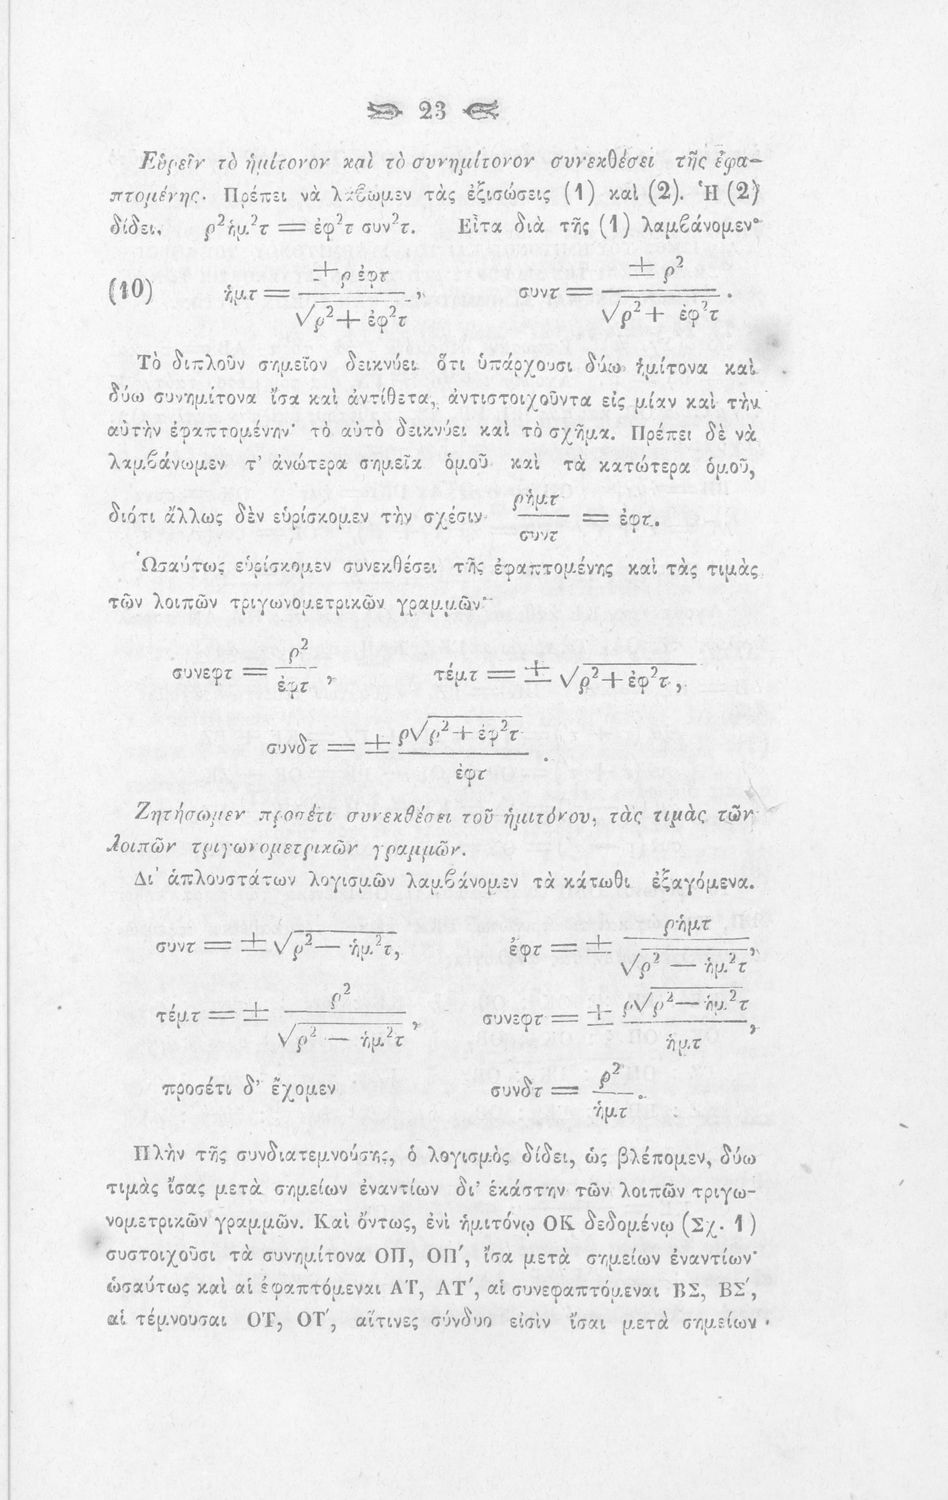 23
Εὑρεῖν τὸ ἡμίτονον καὶ τὸ συνημίτονον συνεκθέσει τῆς ἐφα-
πτομένης. Πρέπει νὰ λάβωμεν τὰς ἐξισώσεις (1) καὶ (2). Ἡ (2)
δίδει, ρ²ἡμ²τ = ἐφ²τ συν²τ. Εἶτα διὰ τῆς (1) λαμβάνομεν·
(10) ἡμτ = ±ρ ἐφτ / √ρ²+ ἐφ²τ , συντ = ± ρ² / √ρ²+ ἐφ²τ .
Τὸ διπλοῦν σημεῖον δεικνύει ὅτι ὑπάρχουσι δύω ἡμίτονα καὶ
δύω συνημίτονα ἴσα καὶ ἀντίθετα, ἀντιστοιχοῦντα εἰς μίαν καὶ τὴν
αὐτὴν ἐφαπτομένην· τὸ αὐτὸ δεικνύει καὶ τὸ σχῆμα. Πρέπει δὲ νὰ
λαμβάνωμεν τ' ἀνώτερα σημεῖα ὁμοῦ καὶ τὰ κατώτερα ὁμοῦ,
διότι ἄλλως δὲν εὑρίσκομεν τὴν σχέσιν ρἡμτ / συντ = ἐφτ.
Ὡσαύτως εὑρίσκομεν συνεκθέσει τῆς ἐφαπτομένης καὶ τὰς τιμὰς
τῶν λοιπῶν τριγωνομετρικῶν γραμμῶν·
συνεφτ = ρ² / ἐφτ , τέμτ = ± √ρ²+ἐφ²τ,
συνδτ = ± ρ√ρ²+ἐφ²τ / ἐφτ .
Ζητήσωμεν προσέτι συνεκθέσει τοῦ ἡμιτόνου, τὰς τιμὰς τῶν
λοιπῶν τριγωνομετρικῶν γραμμῶν.
Δι' ἁπλουστάτων λογισμῶν λαμβάνομεν τὰ κάτωθι ἐξαγόμενα.
συντ = ± √ρ²— ἡμ²τ, ἐφτ = ± ρἡμτ / √ρ² — ἡμ²τ ,
τέμτ = ± ρ² / √ρ² — ἡμ²τ , συνεφτ = ± ρ√ρ²— ἡμ²τ / ἡμτ ,
προσέτι δ' ἔχομεν συνδτ = ρ² / ἡμτ .
Πλὴν τῆς συνδιατεμνούσης, ὁ λογισμὸς δίδει, ὡς βλέπομεν, δύω
τιμὰς ἴσας μετὰ σημείων ἐναντίων δι' ἑκάστην τῶν λοιπῶν τριγω-
νομετρικῶν γραμμῶν. Καὶ ὄντως, ἑνὶ ἡμιτόνῳ ΟΚ δεδομένῳ (Σχ. 1)
συστοιχοῦσι τὰ συνημίτονα ΟΠ, ΟΠ', ἴσα μετὰ σημείων ἐναντίων·
ὡσαύτως καὶ αἱ ἐφαπτόμεναι ΑΤ, ΑΤ', αἱ συνεφαπτόμεναι ΒΣ, ΒΣ',
αἱ τέμνουσαι ΟΤ, ΟΤ', αἵτινες σύνδυο εἰσὶν ἴσαι μετὰ σημείων